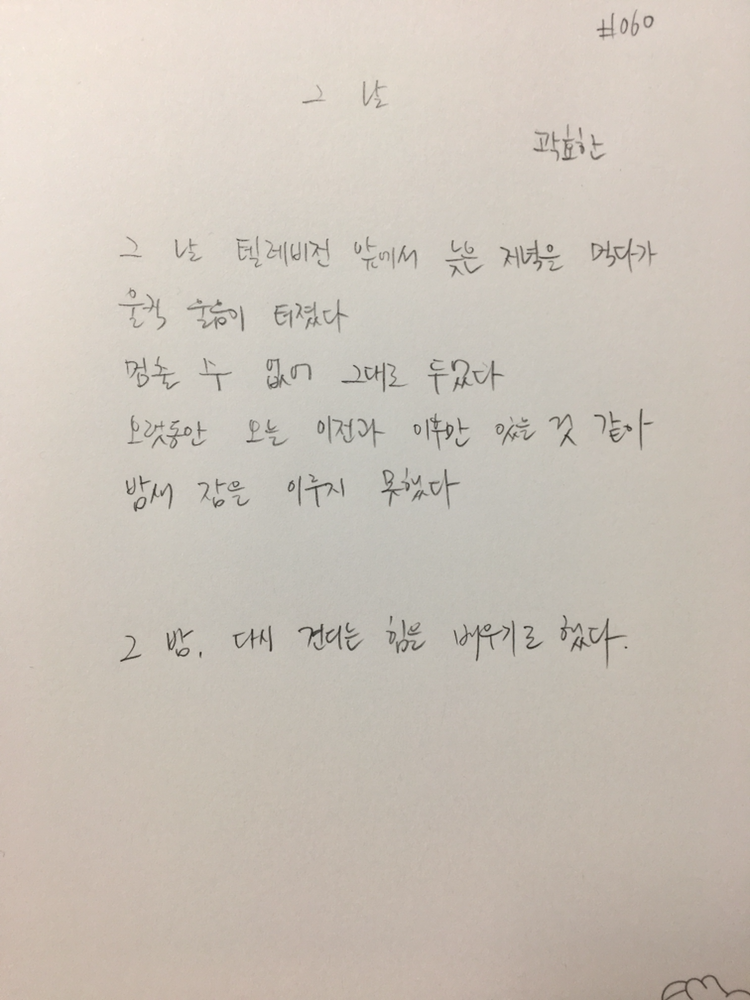 #060
그 날
곽효한
그 날 텔레비전 앞에서 늦은 저녁을 먹다가
울컥 울음이 터졌다
멈출 수 없어 그대로 두었다
오랫동안 오늘 이전과 이후만 있을 것 같아
밤새 잠을 이루지 못했다
그 밤, 다시 견디는 힘을 배우기로 했다.